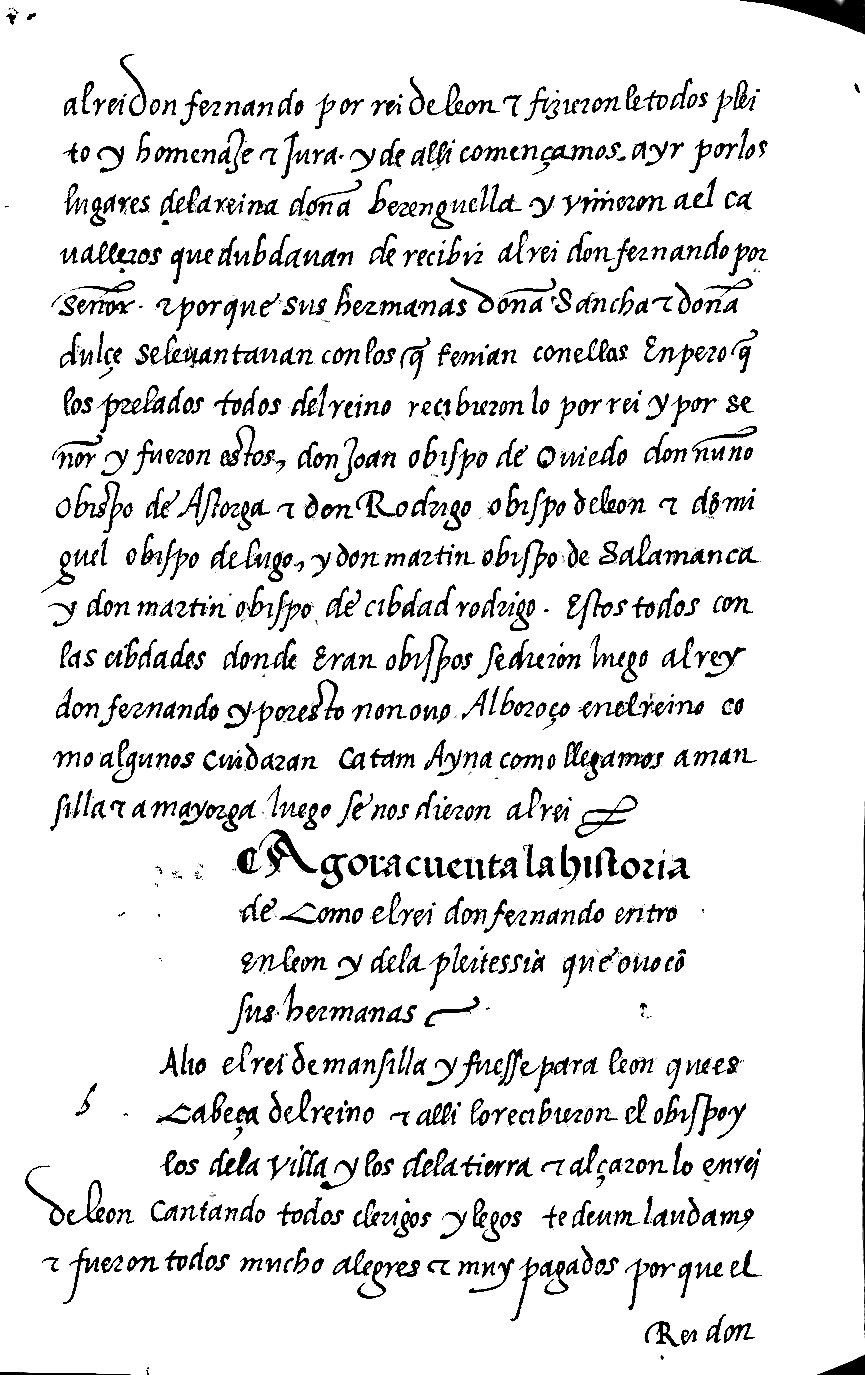 al rei don fernando por rei de leon ⁊ fizieron le todos plei
to y homenaje ⁊ Jura. y de alli començamos a yr por los
lugares dela reina doña berenguella y viñieron a el ca
ualleros que dubdauan de recibir al rei don fernando por
señor. ⁊ por que sus hermanas doña Sancha ⁊ doña
dulçe se leuantauan con los q̃ tenian con ellas Enpero q̃
los prelados todos del reino recibieron lo por rei y por se
ñor y fueron estos, don Joan obispo de Ouiedo don nuño
obispo de Astorga ⁊ don Rodrigo obispo de leon ⁊ dõ mi
guel obispo de lugo, y don martin obispo de Salamanca
y don martin obispo de cibdad rodrigo. Estos todos con
las cibdades donde Eran obispos se dieron luego al rey
don fernando y por esto non ouo Alboroço en el reino co
mo algunos cuidaran Ca tam Ayna como llegamos a man
silla ⁊ a mayorga luego se nos dieron al rei
Agora cuenta la historia
de Como el rei don fernando entro
En leon y dela pleitessia que ouo cõ
sus hermanas
Alio el rei de mansilla y fuesse para leon que es
Cabeça del reino ⁊ alli lo recibieron el obispo y
los dela villa y los dela tierra ⁊ alçaron lo en rei
de leon Cantando todos clerigos y legos te deum laudamꝰ
⁊ fueron todos mucho alegres ⁊ muy pagados por que el
Rei don